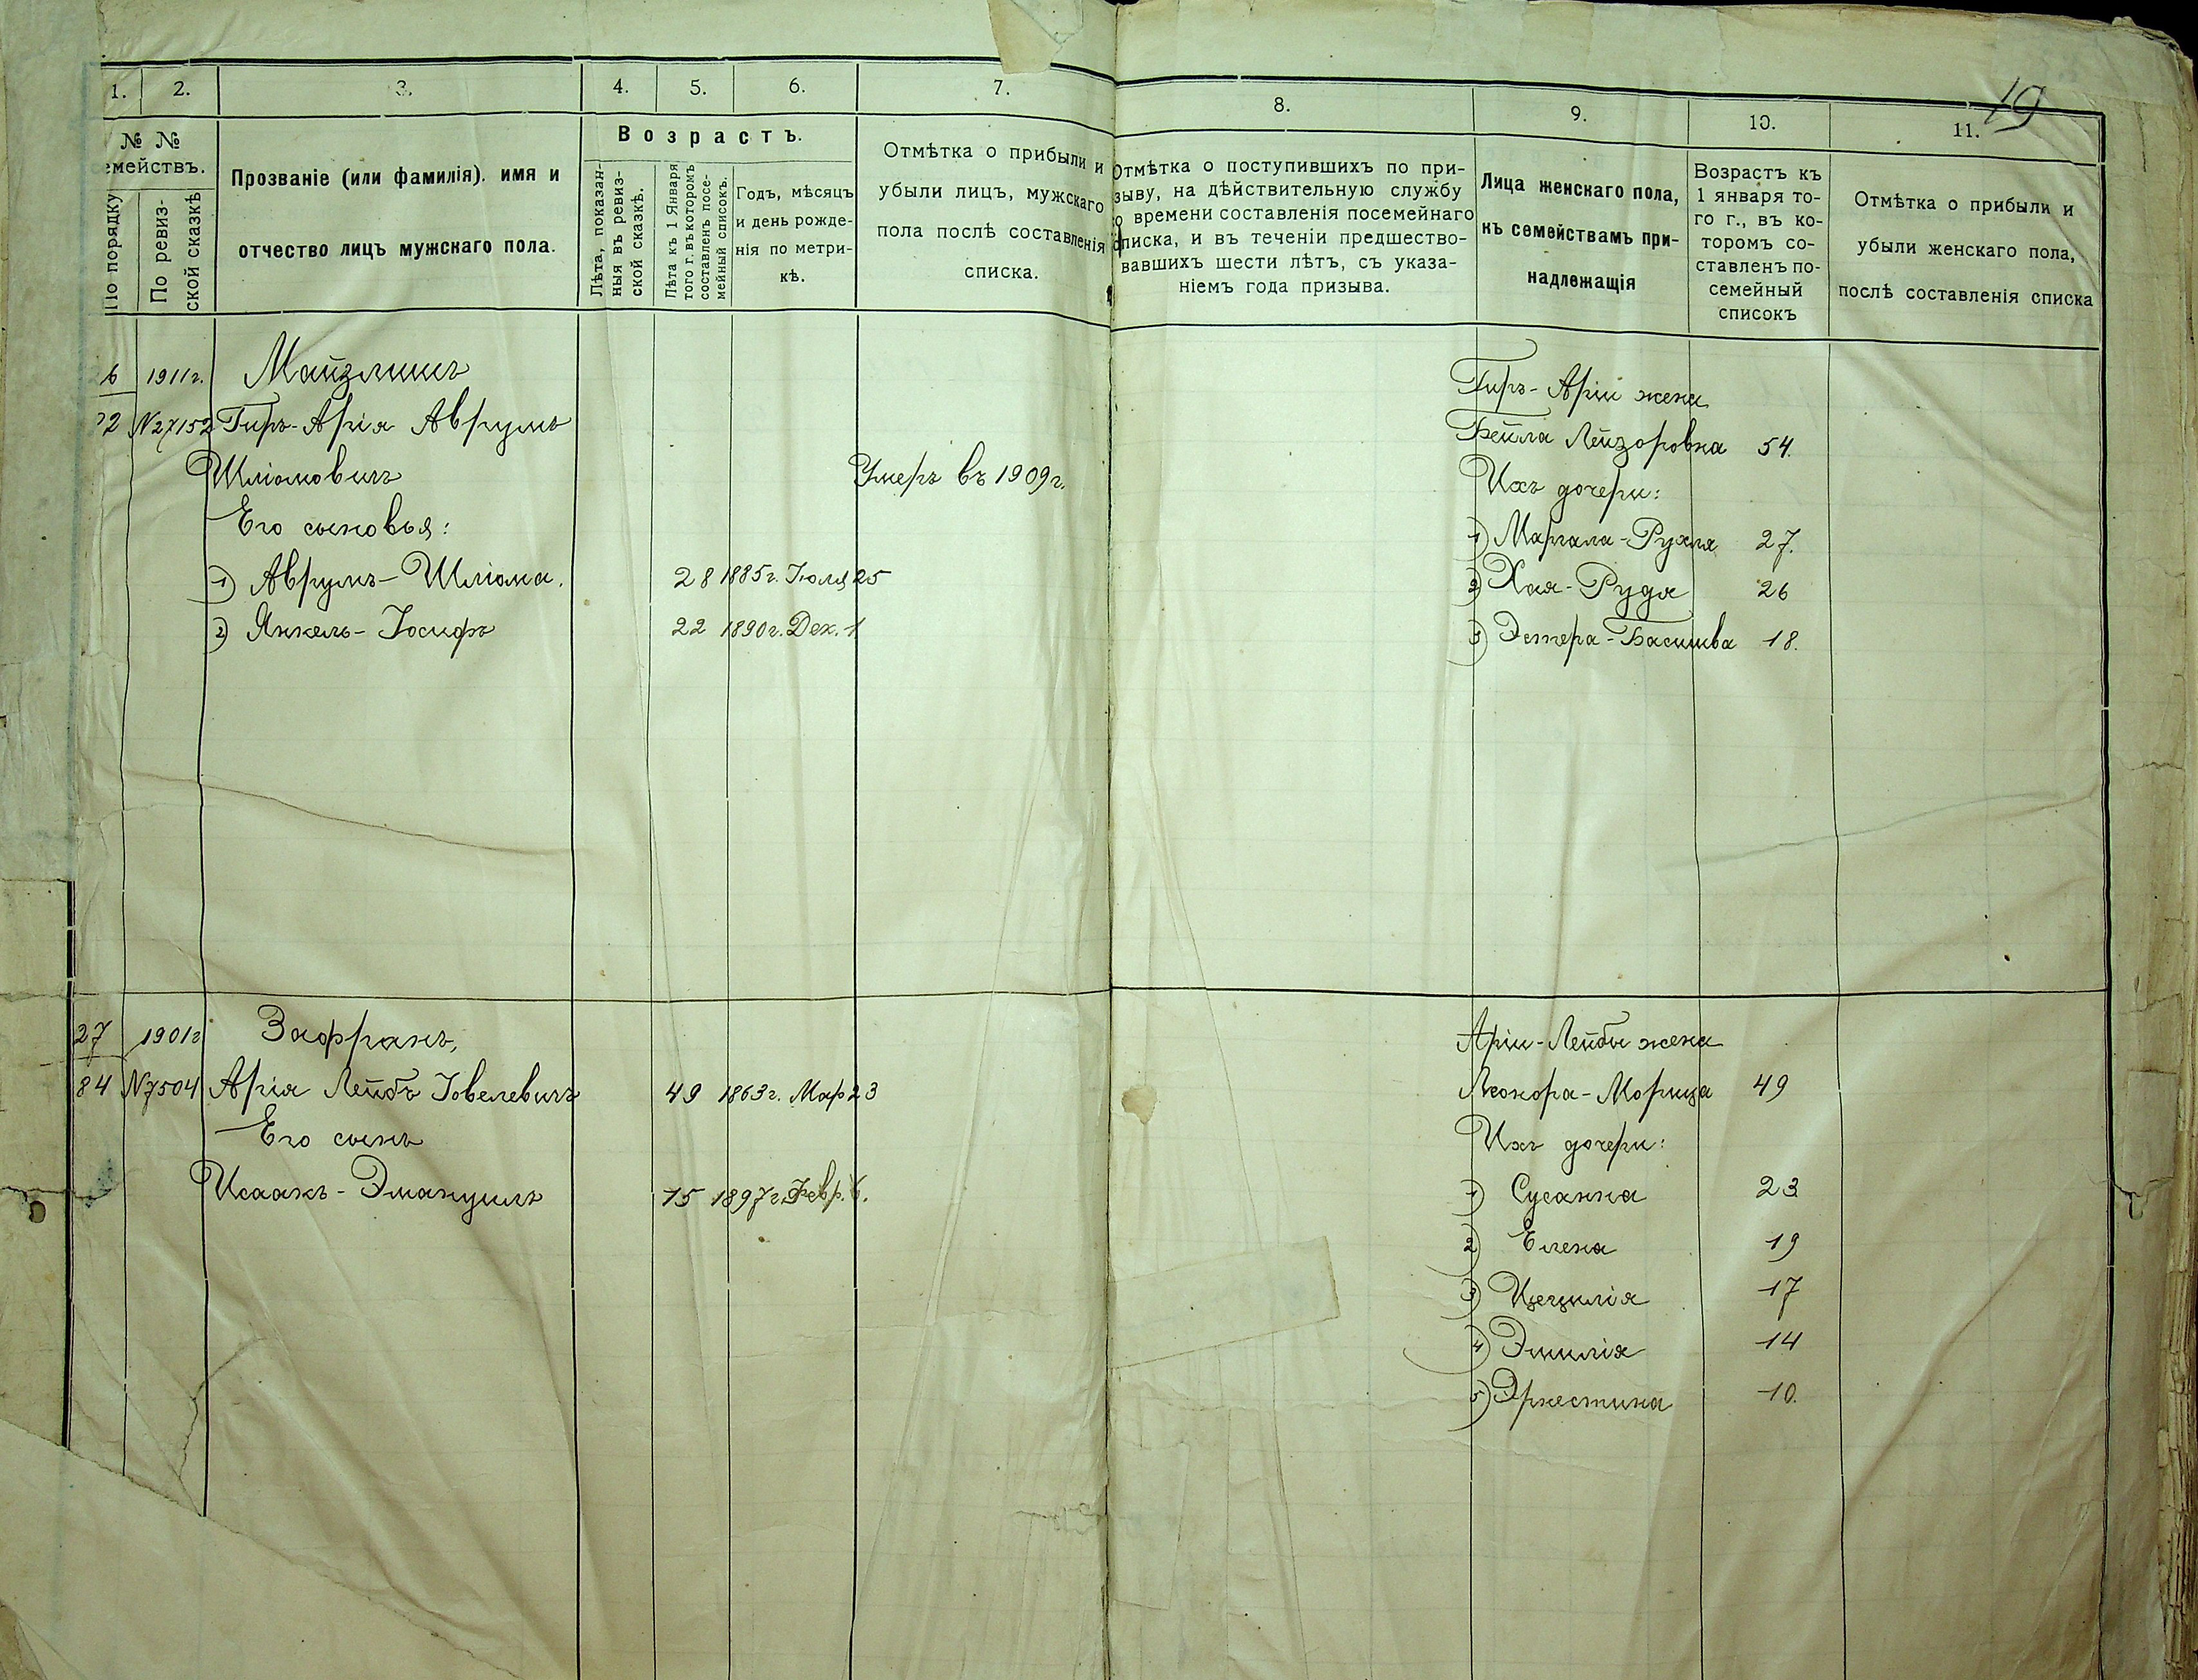 19
1. 2. 3. 4. 5. 6. 7. 8. 9. 10. 11.
№ №
емействъ.
По порядку
По ревиз-
ской сказкѣ
Прозваніе (или фамилія). имя и
отчество лицъ мужскаго пола.
Возрастъ.
Лѣта, показан-
ныя въ ревиз-
ской сказкѣ.
Лѣта къ 1 Января
того г. въ которомъ
составленъ посе-
мейный списокъ.
Годъ, мѣсяцъ
и день рожде-
нія по метри-
кѣ.
Отмѣтка о прибыли и
убыли лицъ, мужскаго
пола послѣ составленія
списка.
Отмѣтка о поступившихъ по при-
зыву, на дѣйствительную службу
о времени составленія посемейнаго
списка, и въ теченіи предшество-
вавшихъ шести лѣтъ, съ указа-
ніемъ года призыва.
Лица женскаго пола,
къ семействамъ при-
надлежащія
Возрастъ къ
1 января то-
го г., въ ко-
торомъ со-
ставленъ по-
семейный
списокъ
Отмѣтка о прибыли и
убыли женскаго пола,
послѣ составленія списка
26 1911г. Майзлишъ
72 N27152 Гиръ-Арія Аврумъ
Шліомовичъ Умеръ въ 1909г.
Его сыновья:
1) Аврумъ-Шліома. 28 1885г. Іюля 25
2) Янкель-Іосифъ 22 1890г. Дек. 1
Гиръ-Аріи жена
Бейла Лейзоровна 54.
Ихъ дочери:
1) Маргала-Рухля 27.
2) Хая-Рудя 26
3) Эстера-Басшива 18.
27 1901г Зафранъ,
84 N7504 Арія Лейбъ Іовелевичъ 49 1863г. Мар 23
Его сынъ
Исаакъ-Эмануилъ 15 1897г. Февр. 6.
Аріи-Лейбы жена
Леонора-Морица 49
Ихъ дочери:
1) Сусанна 23
2) Елена 19
3) Цецилія 17
4) Эмилія 14
5) Эрнестина 10.